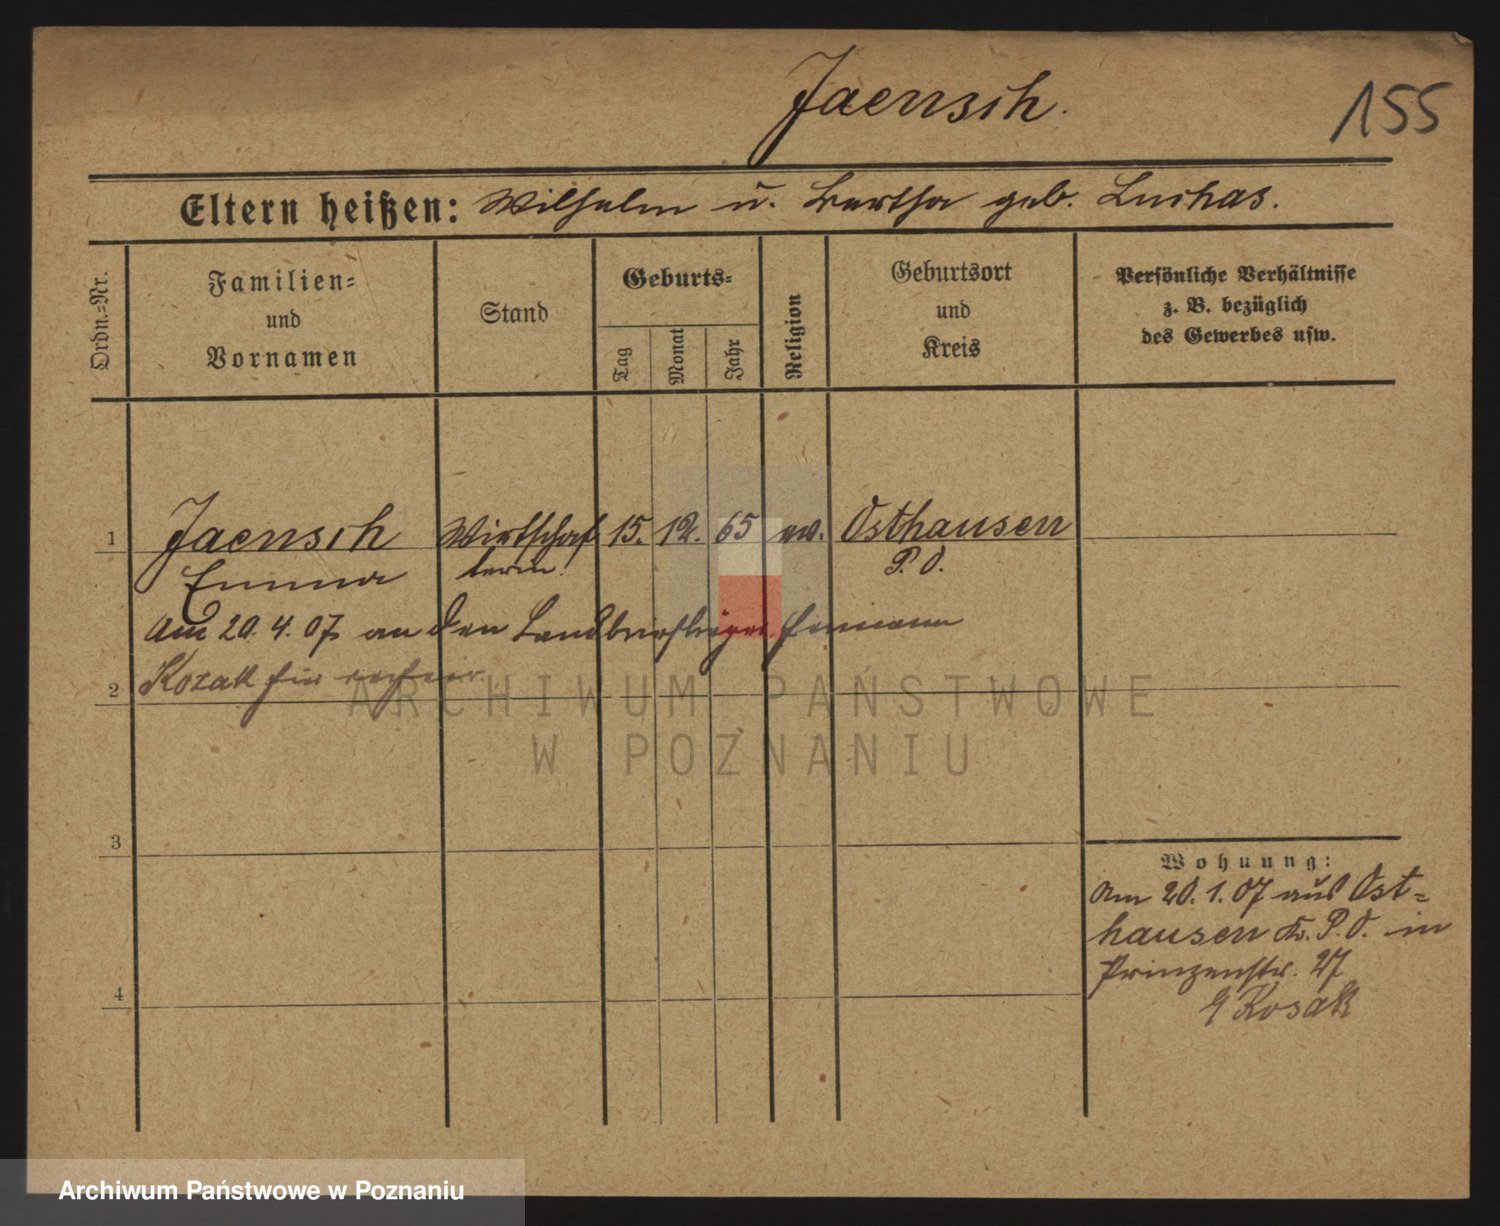 Jaensch.
155
Eltern heißen: Wilhelm u. Bertha geb. Luchas.
Ordn.-Nr.
Familien-
und
Vornamen
Stand
Geburts-
Tag
Monat
Jahr
Religion
Geburtsort
und
Kreis
Persönliche Verhältnisse
z. B. bezüglich
des Gewerbes usw.
1 Jaensch Wirtschaf 15. 12. 65 ev. Osthausen
Emma terin. P. O.
Am 20. 4. 07 an den Landbriefträger Hermann
2 Kozak hier
ARCHIWUM PAŃSTWOWE
W POZNANIU
3
Wohnung:
Am 20. 1. 07 aus Ost-
hausen Kr. P. O. in
Prinzenstr. 27
4
Kosak
Archiwum Państwowe w Poznaniu